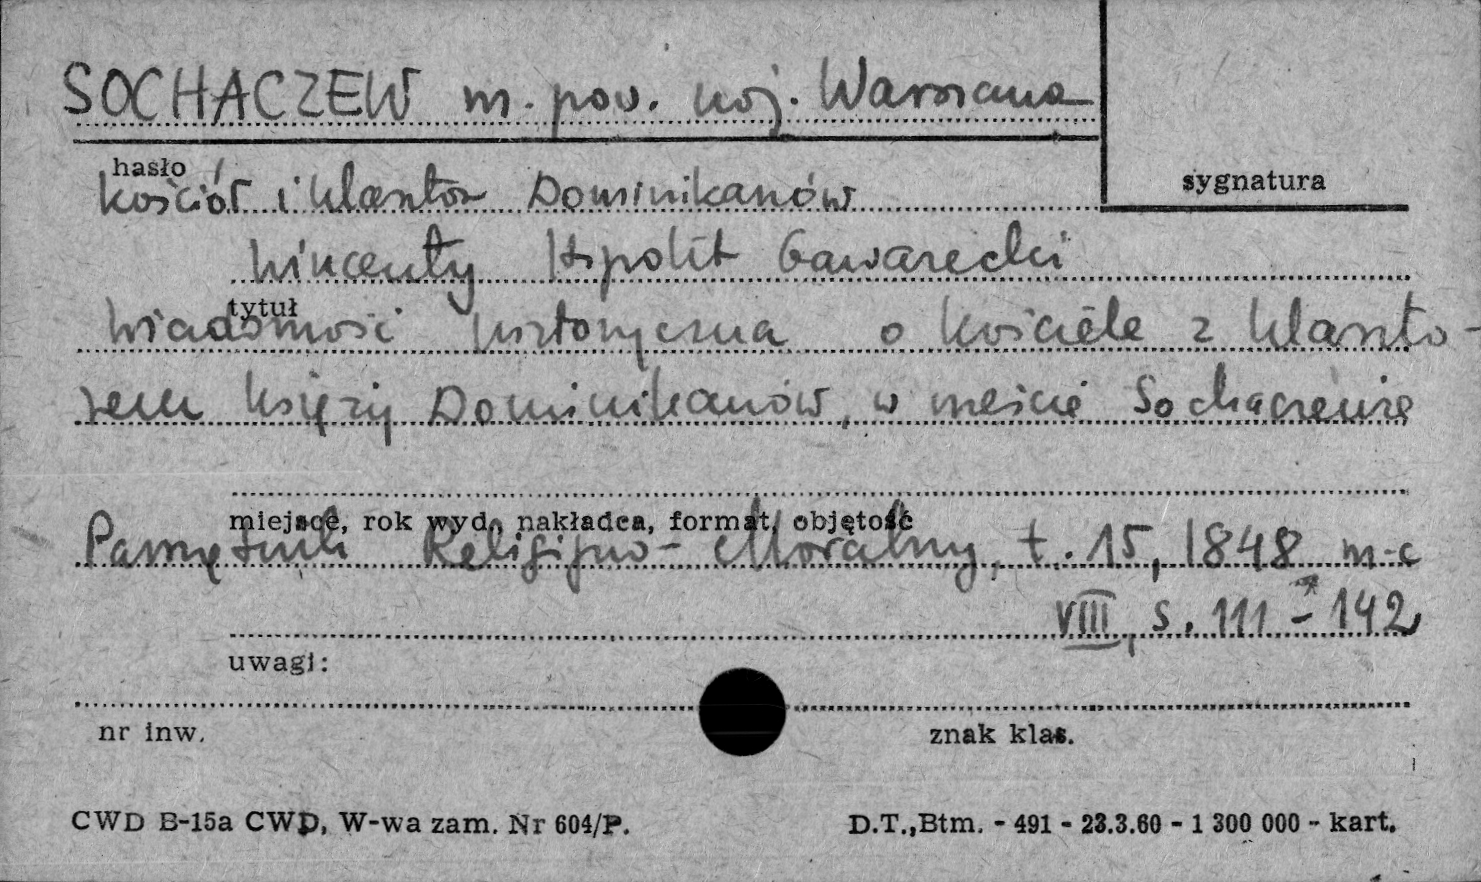 SOCHACZEW m. pow. woj. Warszawa
hasło
sygnatura
kościół i klasztor Dominikanów
Wincenty Hipolit Gawarecki
tytuł
Wiadomość historyczna o kościele z klaszto-
rem księży Dominikanów, w mieście Sochaczewie
miejsce, rok wyd., nakładca, format, objętość
Pamiętnik Religijno-Moralny, t. 15, 1848 m-c
VIII, s. 111-142
uwagi:
nr inw.
znak klas.
CWD B-15a CWD, W-wa zam. Nr 604/P.
D.T.,Btm. - 491 - 23.3.60 - 1 300 000 - kart.